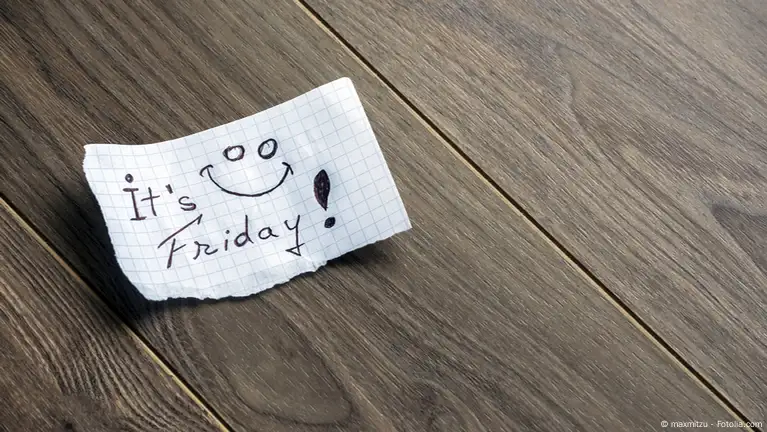 It's
Friday!
© maxmitzu - Fotolia.com